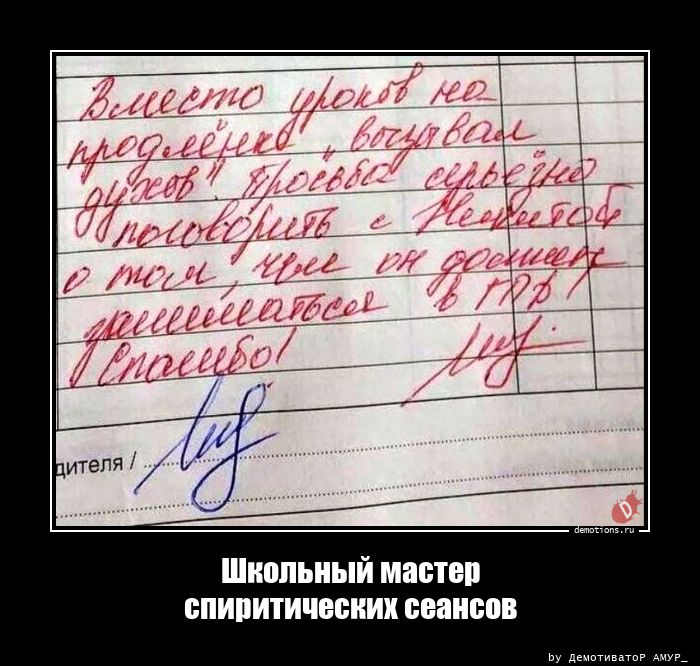 Вместо уроков на
продлёнке „вызывал
духов". Просьба серьёзно
поговорить с Никитой
о том, чем он должен
заниматься в ГПД!
Спасибо!
дителя /
demotions.ru
Школьный мастер
спиритических сеансов
by ДемотиваtоР АМУР_